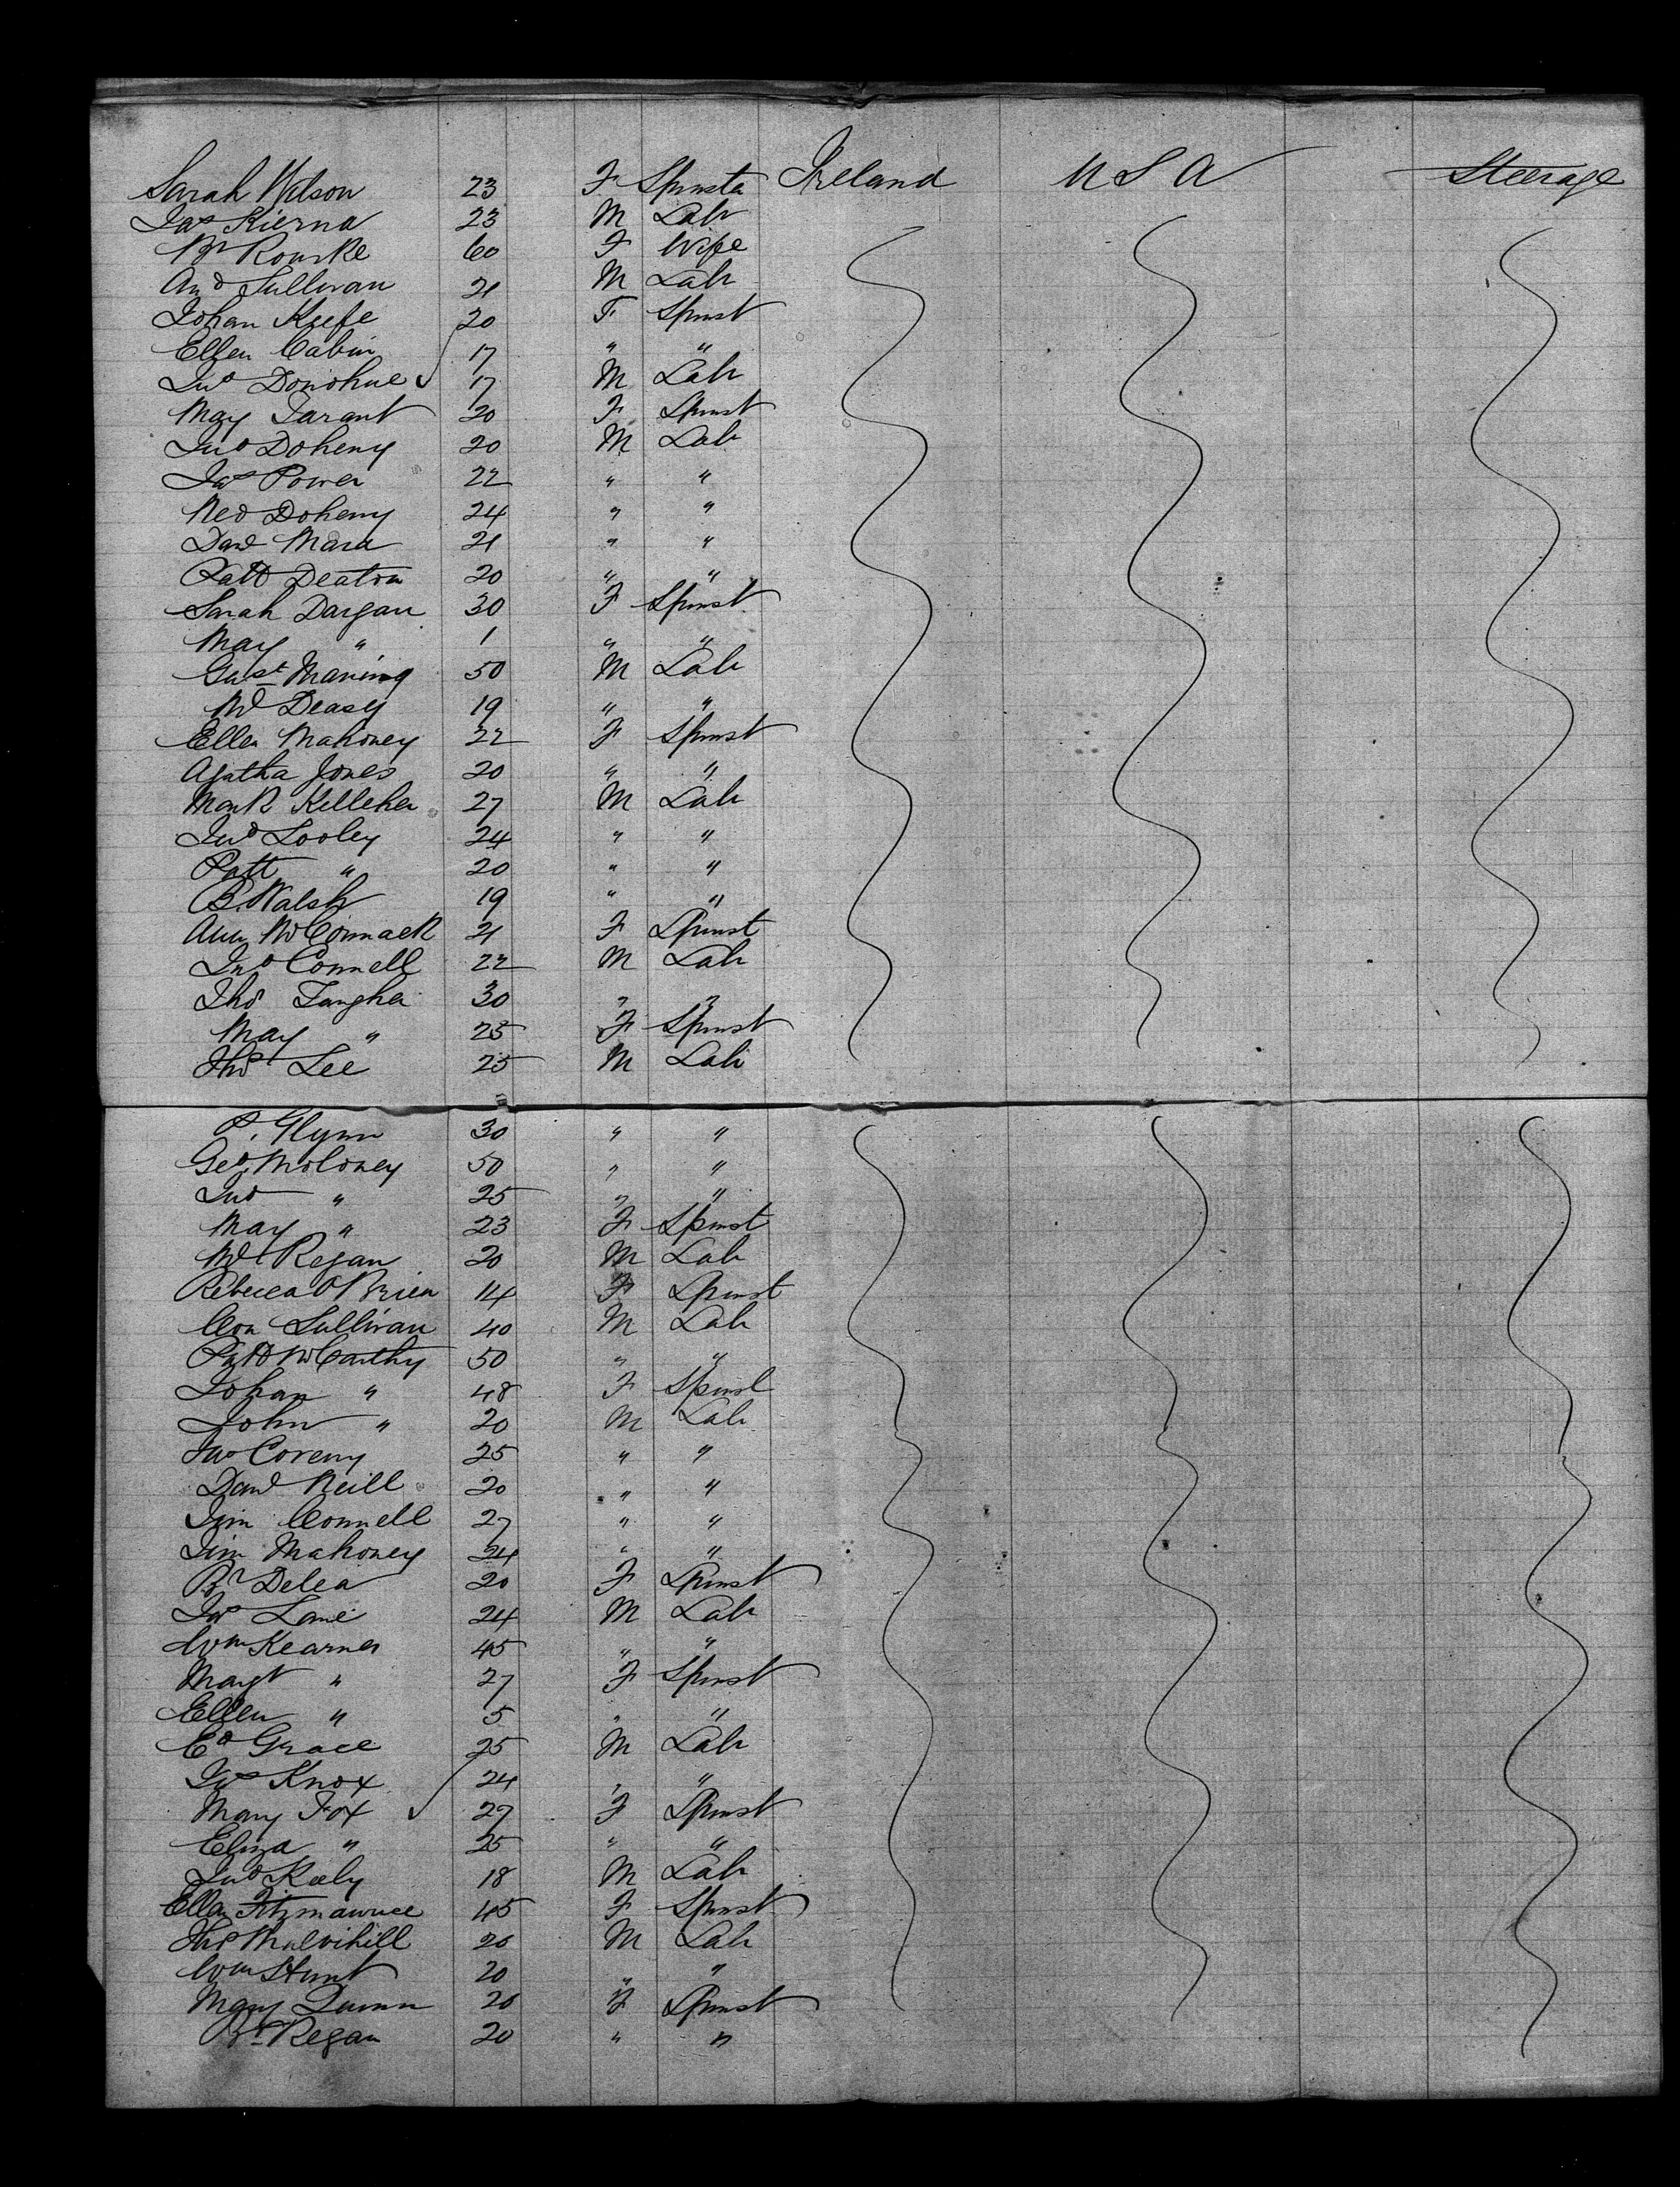 Sarah Wilson 23 F Spinstr Ireland USA Steerage
Jas Kierna 23 M Lab
Bt Rourke 60 F Wife
And Sullivan 21 M Lab
Johan Keefe 20 F Spinst
Ellen Cabin 17 " "
Jno Donohue 17 M Lab
May Tarant 20 F Spinst
Jno Doheny 20 M Lab
Jas Power 22 " "
Ned Doheny 24 " "
Dand Mara 21 " "
Patt Deaton 20 " "
Sarah Dargan 30 F Spinst
May " 1 " "
Gust Maning 50 M Lab
Ml Deasy 19 " "
Ellen Mahoney 22 F Spinst
Agatha Jones 20 " "
Mark Kelleher 27 M Lab
Jno Looley 24 " "
Patt " 20 " "
B. Walsh 19 " "
Ann McCormack 21 F Spinst
Jno Connell 22 M Lab
Thos Tangher 30 " "
May " 25 F Spinst
Thos Lee 25 M Lab
P. Glynn 30 " "
Geo Moloney 50 " "
Jno " 25 " "
May " 23 F Spinst
Ml Regan 20 M Lab
Rebecca OBrien 14 F Spinst
Con Sullivan 40 M Lab
Patt McCarthy 50 " "
Johan " 48 F Spinst
John " 20 M Lab
Jno Coveny 25 " "
Dand Neill 20 " "
Jim Connell 27 " "
Jim Mahoney 24 " "
Bt Delea 20 F Spinst
Jas Lane 24 M Lab
Wm Kearnes 45 " "
Margt " 27 F Spinst
Ellen " 5 " "
Ed Grace 25 M Lab
Jas Knox 24 " "
Mary Fox 27 F Spinst
Eliza " 25 " "
Jno Keely 18 M Lab
Ellen Fitzmaurice 45 F Spinst
Thos Mulvihill 20 M Lab
Wm Hunt 20 " "
Mary Quinn 20 F Spinst
Bt Regan 20 " "